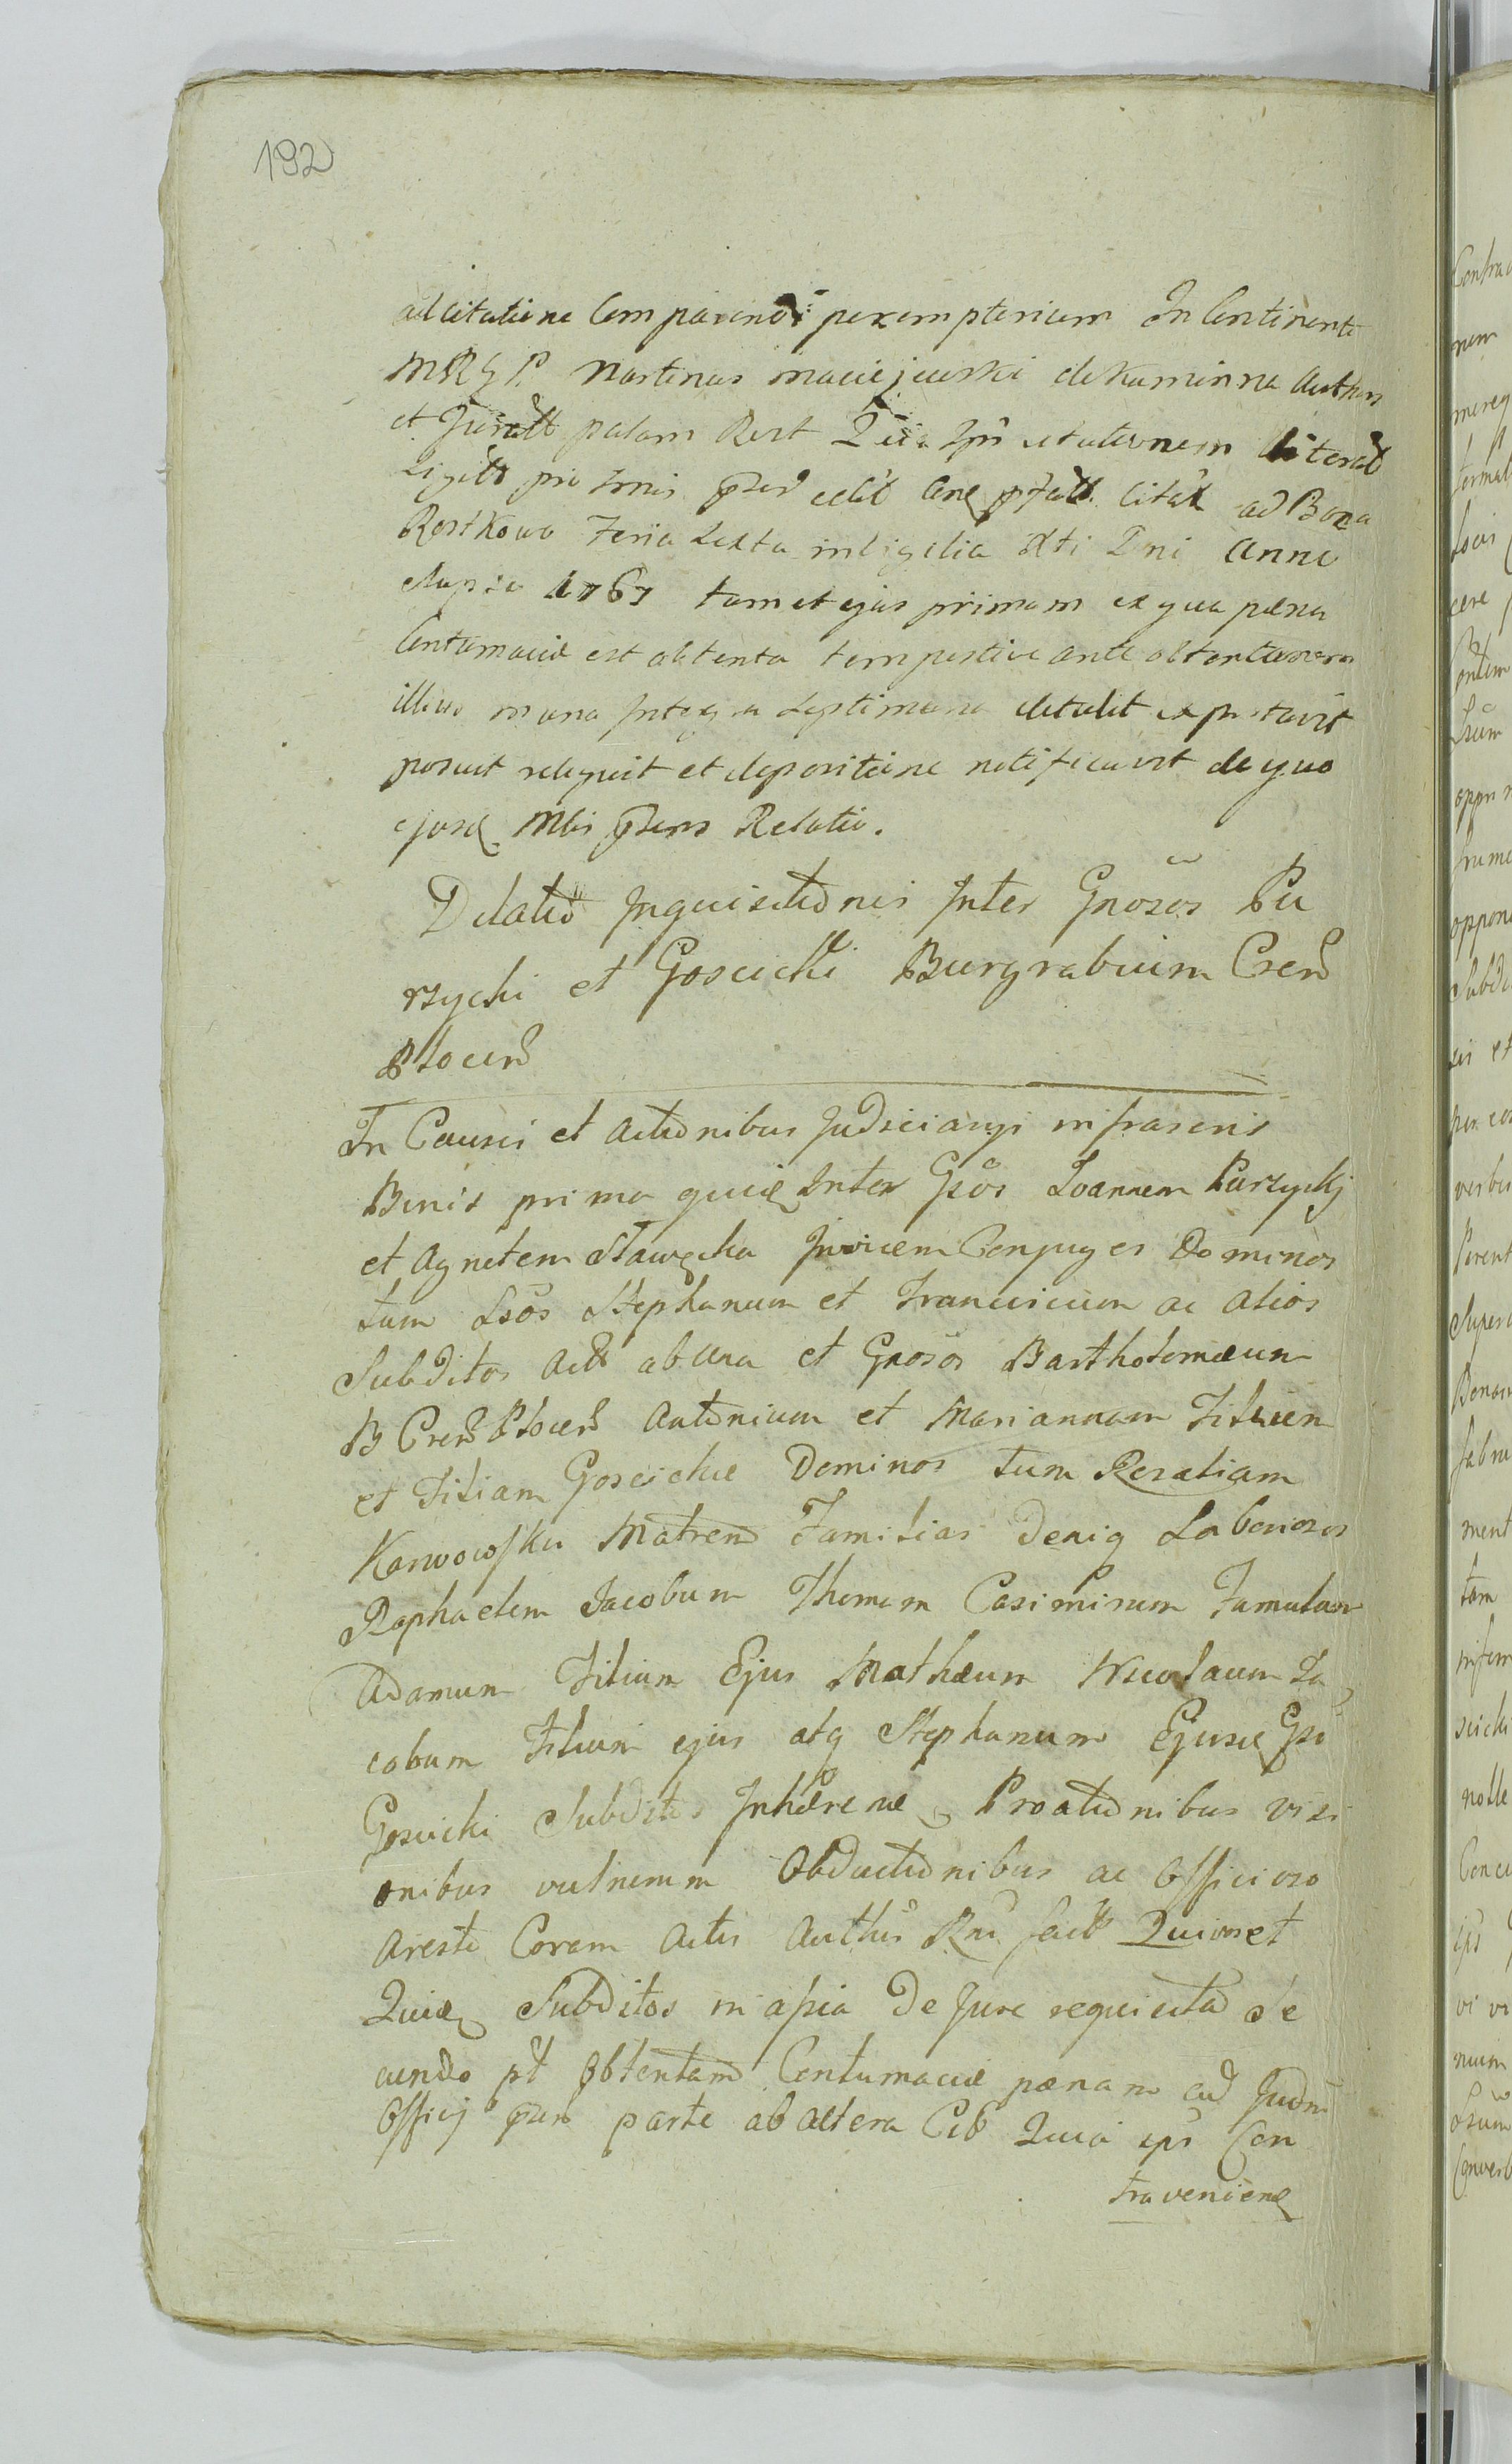 192
adcitatione Comparendi peremptorium In Continenti
MRGP. Martinus Maciejewski de Kaminna Authen
et Juratt palam Rect Quia Ipse citationem literal
Sigill pro Tmis pnd Bona
Rostkowo Feria Sexta in Vigilia Xti Dni Anno
elapso 1767 tam et ejus primam ex qua pæna
Contumaciæ est obtenta tempestive ante obtentionem
illius in una Integra Septimana detulit exportavit
posuit reliquit et depositione notificavit de quo
ejusd Mlis pzens Relatio.
Dilatio Inquisitionis Inter Gnosos Pu
rzycki et Goscicki Burgrabium Cren
Plocen
In Causis et Actionibus Judiciarys infrascris
Binis prima quid Inter Gsos Joannem Purzyckj
et Agnetem Stawecka Invicem Conjuges Dominos
tum Lsos Stephanum et Franciscum ac alios
Subditos Act ab una et Gnosos Bartholomæum
B Cren Plocen Antonium et Mariannam Filium
et Filiam Goscickie Dominos tum Rosaliam
Karwowska Matrem Familias Deniq Laboriosos
Raphaelem Jacobum Thomam Casimirum Famulum
Adamum Filium Ejus Mathæum Nicolaum Ja
cobum Filium ejus atq Stephanum Ejusd Gsi
Goscicki Subditos Inhærend Protionibus visi
onibus vulnerum Obductionibus ac Officioso
Aresto Coram Actis Authis Rni fact Quionet
Quid Subditos in apia De Jure requisita Se
cundo pt Obtentam Contumaciæ pænam ad Judm
Officj pzen parte ab altera Cit Quia ips Con
traveniend